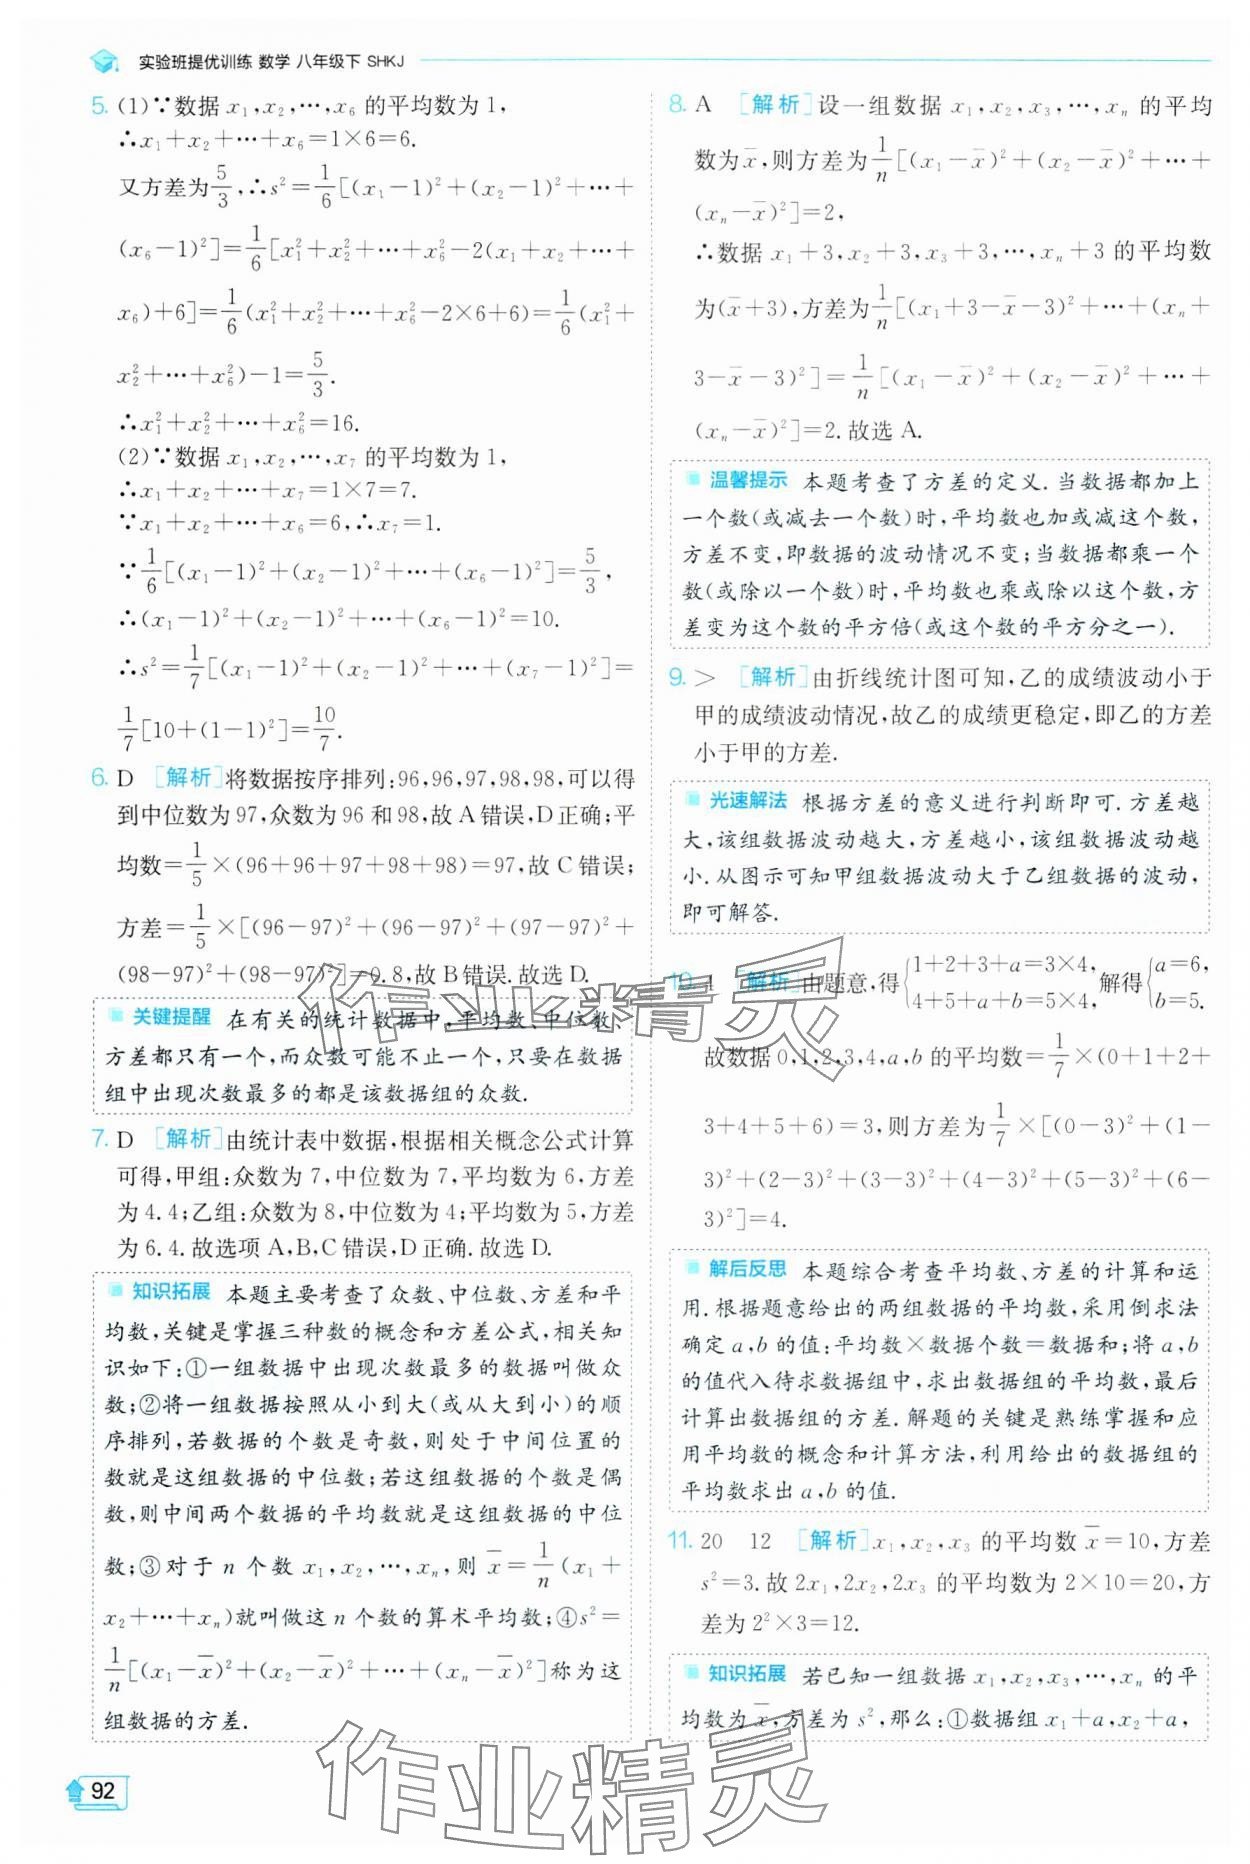 实验班提优训练 数学 八年级下 SHKJ
5. (1)∵数据 x₁,x₂,⋯,x₆ 的平均数为 1,
∴x₁+x₂+⋯+x₆=1×6=6.
又方差为5/3,∴s²=1/6[(x₁-1)²+(x₂-1)²+⋯+
(x₆-1)²]=1/6[x₁²+x₂²+⋯+x₆²-2(x₁+x₂+⋯+
x₆)+6]=1/6(x₁²+x₂²+⋯+x₆²-2×6+6)=1/6(x₁²+
x₂²+⋯+x₆²)-1=5/3.
∴x₁²+x₂²+⋯+x₆²=16.
(2)∵数据 x₁,x₂,⋯,x₇ 的平均数为 1,
∴x₁+x₂+⋯+x₇=1×7=7.
∵x₁+x₂+⋯+x₆=6,∴x₇=1.
∵1/6[(x₁-1)²+(x₂-1)²+⋯+(x₆-1)²]=5/3,
∴(x₁-1)²+(x₂-1)²+⋯+(x₆-1)²=10.
∴s²=1/7[(x₁-1)²+(x₂-1)²+⋯+(x₇-1)²]=
1/7[10+(1-1)²]=10/7.
6. D [解析]将数据按序排列:96,96,97,98,98,可以得
到中位数为 97,众数为 96 和 98,故 A 错误,D 正确;平
均数=1/5×(96+96+97+98+98)=97,故 C 错误;
方差=1/5×[(96-97)²+(96-97)²+(97-97)²+
(98-97)²+(98-97)²]=0.8,故 B 错误.故选 D.
关键提醒 在有关的统计数据中,平均数、中位数、
方差都只有一个,而众数可能不止一个,只要在数据
组中出现次数最多的都是该数据组的众数.
7. D [解析]由统计表中数据,根据相关概念公式计算
可得,甲组:众数为 7,中位数为 7,平均数为 6,方差
为 4.4;乙组:众数为 8,中位数为 4;平均数为 5,方差
为 6.4.故选项 A,B,C 错误,D 正确.故选 D.
知识拓展 本题主要考查了众数、中位数、方差和平
均数,关键是掌握三种数的概念和方差公式,相关知
识如下:①一组数据中出现次数最多的数据叫做众
数;②将一组数据按照从小到大(或从大到小)的顺
序排列,若数据的个数是奇数,则处于中间位置的
数就是这组数据的中位数;若这组数据的个数是偶
数,则中间两个数据的平均数就是这组数据的中位
数;③对于 n 个数 x₁,x₂,⋯,xₙ,则 x̅=1/n(x₁+
x₂+⋯+xₙ)就叫做这 n 个数的算术平均数;④s²=
1/n[(x₁-x̅)²+(x₂-x̅)²+⋯+(xₙ-x̅)²]称为这
组数据的方差.
92
8. A [解析]设一组数据 x₁,x₂,x₃,⋯,xₙ 的平均
数为x̅,则方差为1/n[(x₁-x̅)²+(x₂-x̅)²+⋯+
(xₙ-x̅)²]=2,
∴数据 x₁+3,x₂+3,x₃+3,⋯,xₙ+3 的平均数
为(x̅+3),方差为1/n[(x₁+3-x̅-3)²+⋯+(xₙ+
3-x̅-3)²]=1/n[(x₁-x̅)²+(x₂-x̅)²+⋯+
(xₙ-x̅)²]=2.故选 A.
温馨提示 本题考查了方差的定义.当数据都加上
一个数(或减去一个数)时,平均数也加或减这个数,
方差不变,即数据的波动情况不变;当数据都乘一个
数(或除以一个数)时,平均数也乘或除以这个数,方
差变为这个数的平方倍(或这个数的平方分之一).
9. > [解析]由折线统计图可知,乙的成绩波动小于
甲的成绩波动情况,故乙的成绩更稳定,即乙的方差
小于甲的方差.
光速解法 根据方差的意义进行判断即可.方差越
大,该组数据波动越大,方差越小,该组数据波动越
小.从图示可知甲组数据波动大于乙组数据的波动,
即可解答.
10. 4 [解析]由题意,得{1+2+3+a=3×4, 4+5+a+b=5×4,解得{a=6, b=5.
故数据 0,1,2,3,4,a,b 的平均数=1/7×(0+1+2+
3+4+5+6)=3,则方差为1/7×[(0-3)²+(1-
3)²+(2-3)²+(3-3)²+(4-3)²+(5-3)²+(6-
3)²]=4.
解后反思 本题综合考查平均数、方差的计算和运
用.根据题意给出的两组数据的平均数,采用倒求法
确定 a,b 的值:平均数×数据个数=数据和;将 a,b
的值代入待求数据组中,求出数据组的平均数,最后
计算出数据组的方差.解题的关键是熟练掌握和应
用平均数的概念和计算方法,利用给出的数据组的
平均数求出 a,b 的值.
11. 20 12 [解析]x₁,x₂,x₃ 的平均数 x̅=10,方差
s²=3.故 2x₁,2x₂,2x₃ 的平均数为 2×10=20,方
差为 2²×3=12.
知识拓展 若已知一组数据 x₁,x₂,x₃,⋯,xₙ 的平
均数为 x̅,方差为 s²,那么:①数据组 x₁+a,x₂+a,
作业精灵
作业精灵